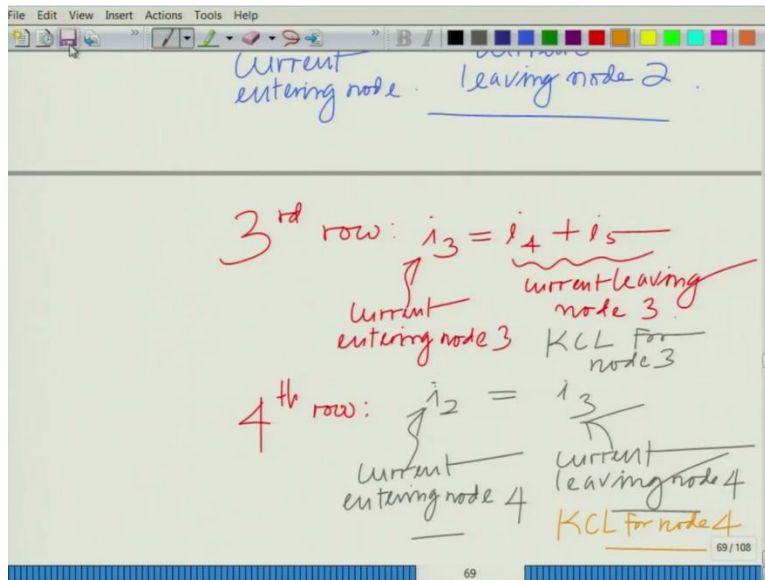 File Edit View Insert Actions Tools Help
current
entering node. leaving node 2.
3rd row: i3 = i4 + i5
current leaving
node 3.
current
entering node 3
KCL For
node 3
4th row: i2 = i3
current
entering node 4
current
leaving node 4
KCL for node 4
69 / 108
69